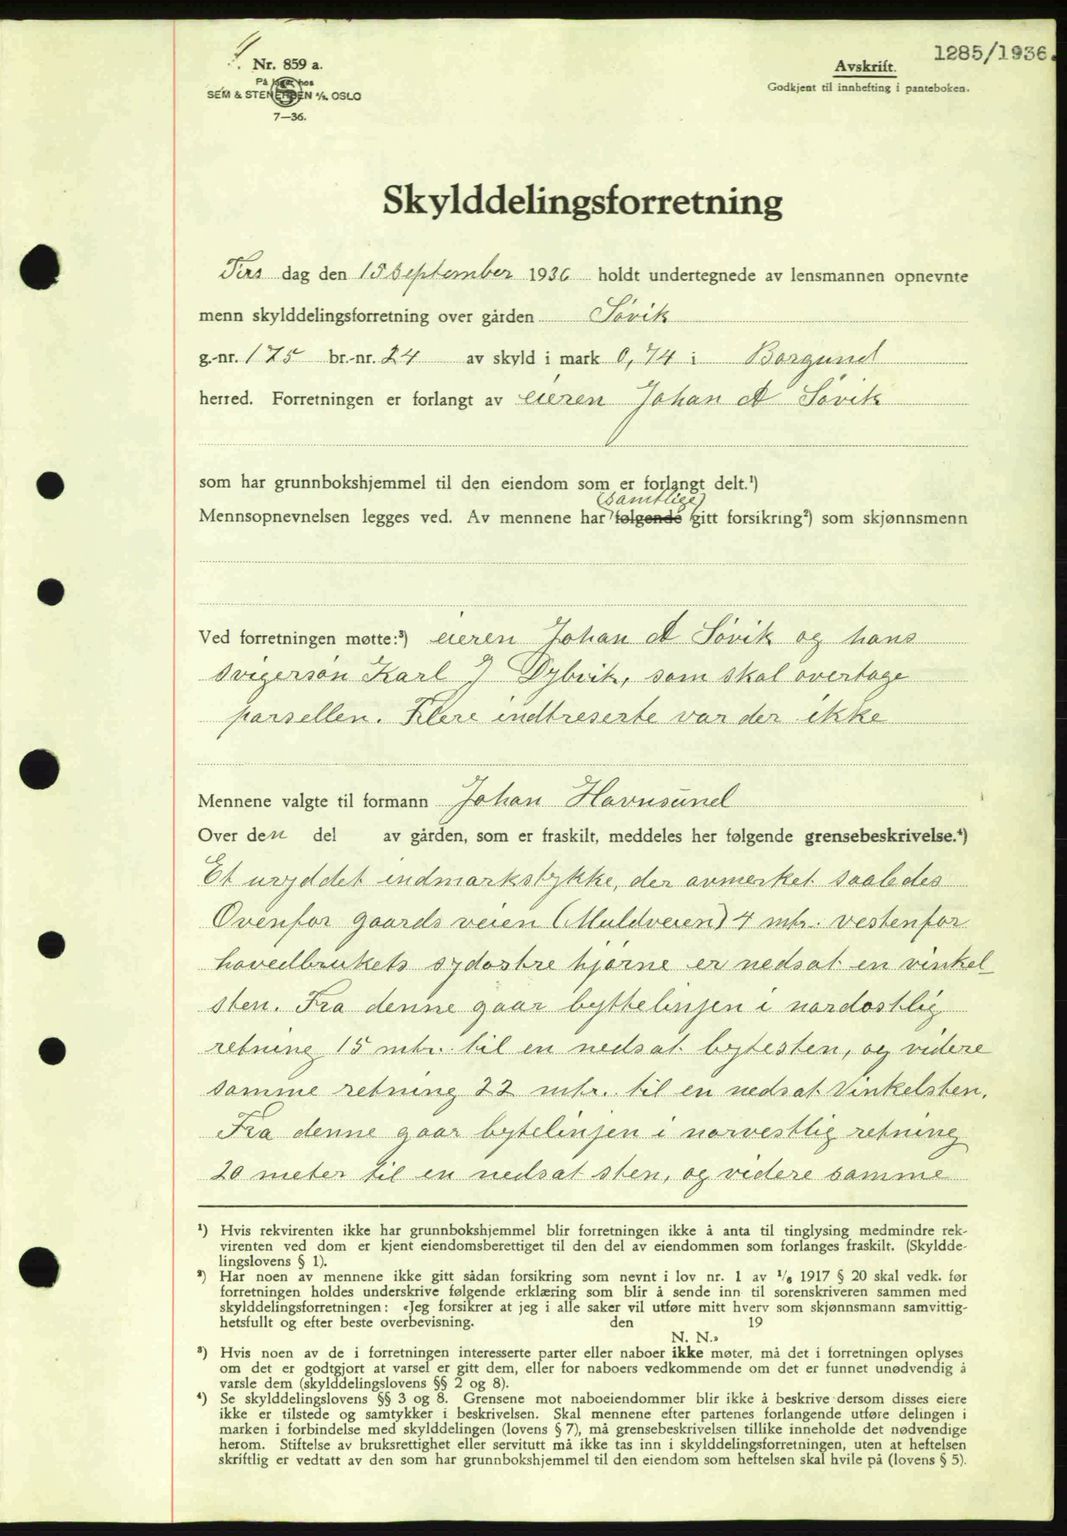 1285/1936.
Nr. 859 a.
På lager hos
SEM & STENERSEN A/S. OSLO
7—36.
Avskrift.
Godkjent til innhefting i panteboken.
Skylddelingsforretning
Tirs dag den 15 September 1936 holdt undertegnede av lensmannen opnevnte
menn skylddelingsforretning over gården Søvik
g.-nr. 175 br.-nr. 24 av skyld i mark 0,74 i Borgund
herred. Forretningen er forlangt av eieren Johan A Søvik
som har grunnbokshjemmel til den eiendom som er forlangt delt.¹)
(samtlige)
Mennsopnevnelsen legges ved. Av mennene har følgende gitt forsikring²) som skjønnsmenn
Ved forretningen møtte:³) eieren Johan A Søvik og hans
svigersøn Karl J Dybvik, som skal overtage
parsellen. Flere indtreserte var der ikke
Mennene valgte til formann Johan Havnsund
Over den del av gården, som er fraskilt, meddeles her følgende grensebeskrivelse.⁴)
Et uryddet indmarkstykke, der avmerket saaledes
Ovenfor gaards veien (Muldveien) 4 mtr. vestenfor
hovedbrukets sydøstre hjørne er nedsat en vinkel-
sten. Fra denne gaar byttelinjen i nordostlig
retning 15 mtr. til en nedsat bytesten, og videre
samme retning 22 mtr. til en nedsat Vinkelsten.
Fra denne gaar bytelinjen i norvestlig retning
20 meter til en nedsat sten, og videre samme
¹) Hvis rekvirenten ikke har grunnbokshjemmel blir forretningen ikke å anta til tinglysing medmindre rek-
virenten ved dom er kjent eiendomsberettiget til den del av eiendommen som forlanges fraskilt. (Skyldde-
lingslovens § 1).
²) Har noen av mennene ikke gitt sådan forsikring som nevnt i lov nr. 1 av 1/6 1917 § 20 skal vedk. før
forretningen holdes underskrive følgende erklæring som blir å sende inn til sorenskriveren sammen med
skylddelingsforretningen: «Jeg forsikrer at jeg i alle saker vil utføre mitt hverv som skjønnsmann samvittig-
hetsfullt og efter beste overbevisning. den 19
N. N.»
³) Hvis noen av de i forretningen interesserte parter eller naboer ikke møter, må det i forretningen oplyses
om det er godtgjort at varsel er gitt dem, eller for naboers vedkommende om det er funnet unødvendig å
varsle dem (skylddelingslovens §§ 2 og 8).
⁴) Se skylddelingslovens §§ 3 og 8. Grensene mot naboeiendommer blir ikke å beskrive dersom disses eiere
ikke er tilstede og samtykker i beskrivelsen. Skal mennene efter partenes forlangende utføre delingen i
marken i forbindelse med skylddelingen (lovens § 7), må grensebeskrivelsen tillike inneholde det nødvendige
herom. Stiftelse av bruksrettighet eller servitutt må ikke tas inn i skylddelingsforretningen, uten at heftelsen
skriftlig er vedtatt av den som har grunnbokshjemmel til den eiendom som heftelsen skal hvile på (lovens § 5).